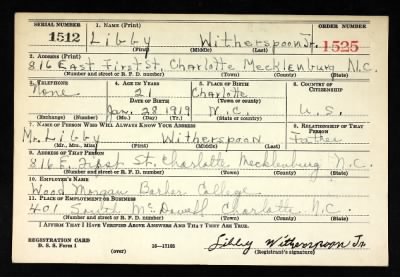 SERIAL NUMBER 1. NAME (Print) ORDER NUMBER
1512 Libby Witherspoon Jr. 1525
(First) (Middle) (Last)
2. ADDRESS (Print)
816 East First St. Charlotte Mecklenburg N.C.
(Number and street or R. F. D. number) (Town) (County) (State)
3. TELEPHONE 4. AGE IN YEARS 5. PLACE OF BIRTH 6. COUNTRY OF CITIZENSHIP
None 21 Charlotte
DATE OF BIRTH (Town or county)
Jan. 28 1919 N.C. U.S.
(Exchange) (Number) (Mo.) (Day) (Yr.) (State or country)
7. NAME OF PERSON WHO WILL ALWAYS KNOW YOUR ADDRESS 8. RELATIONSHIP OF THAT PERSON
Mr. Libby Witherspoon Father
(Mr., Mrs., Miss) (First) (Middle) (Last)
9. ADDRESS OF THAT PERSON
816 E. First St. Charlotte Mecklenburg N.C.
(Number and street or R. F. D. number) (Town) (County) (State)
10. EMPLOYER'S NAME
Wood Morgan Barber College
11. PLACE OF EMPLOYMENT OR BUSINESS
401 South McDowell Charlotte N.C.
(Number and street or R. F. D. number) (Town) (County) (State)
I AFFIRM THAT I HAVE VERIFIED ABOVE ANSWERS AND THAT THEY ARE TRUE.
REGISTRATION CARD
D. S. S. Form 1 (over) 16—17105 Libby Witherspoon Jr.
(Registrant's signature)